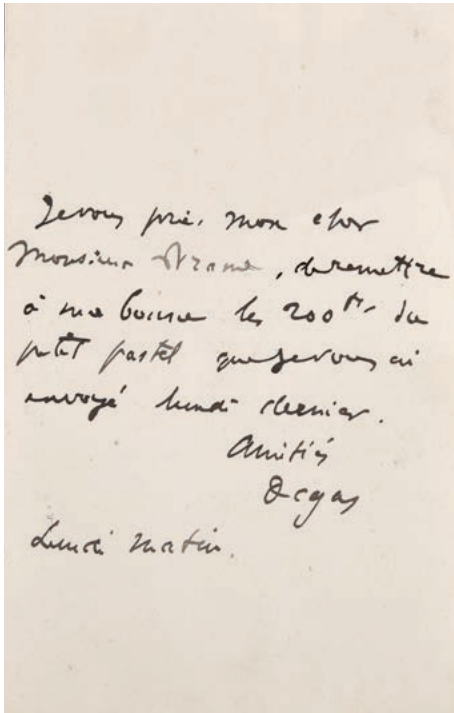 Je vous prie, mon cher
Monsieur Brame, de remettre
à ma bonne les 200 frs du
petit pastel que je vous ai
envoyé lundi dernier.
Amitiés
Degas
Lundi matin.